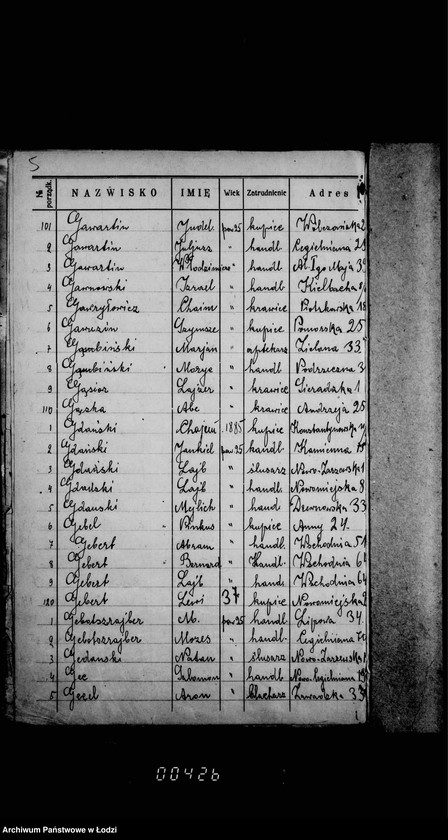 5
№ porządk. NAZWISKO IMIĘ Wiek Zatrudnienie Adres
101 Gawartin Judel pow 25 kupiec Wólczańska
2 Gawartin Juljusz " handl. Cegielniana 21
3 Gawartin Włodzimierz " handl. Al. 1go Maja
4 Gawnowski Izrael " handl. Kielbacha
5 Gawryłowicz Chaim " krawiec Piotrkowska 18
6 Gawuzin Szymsze " kupiec Pomorska 25
7 Gąmbiński Marjan " aptekarz Zielona 33
8 Gąmbiński Mozys " handl Podrzeczna 3
9 Gąsior Lajzer " krawiec Sieradzka 1
110 Gąska Abe " krawiec Andrzeja 25
1 Gdański Chapeni 1885 kupiec Konstantynowska
2 Gdański Jankiel pow 25 handl. Kamienna
3 Gdański Lajb " ślusarz Nowo-Zarzewska
4 Gdański Lajb " handl. Nowomiejska 8
5 Gdański Mejlich " handl Drewnowska 33
6 Gebel Pinkus " kupiec Anny 24.
7 Gebert Abram " handl. Wschodnia 51
8 Gebert Bernard " Handl. Wschodnia 6
9 Gebert Lajb " handl Wschodnia 64
120 Gebert Lewi 37 kupiec Nowomiejska
1 Gebotszrajber M. pow 25 handl. Lipowa 34
2 Gebotszrajber Mozes " handl. Cegielniana
3 Gedański Natan " ślusarz Nowo-Zarzewska
4 Gec Salomon " handl. Nowo-Cegielniana
5 Gecel Aron " blacharz Zawadzka 33
00426
Archiwum Państwowe w Łodzi